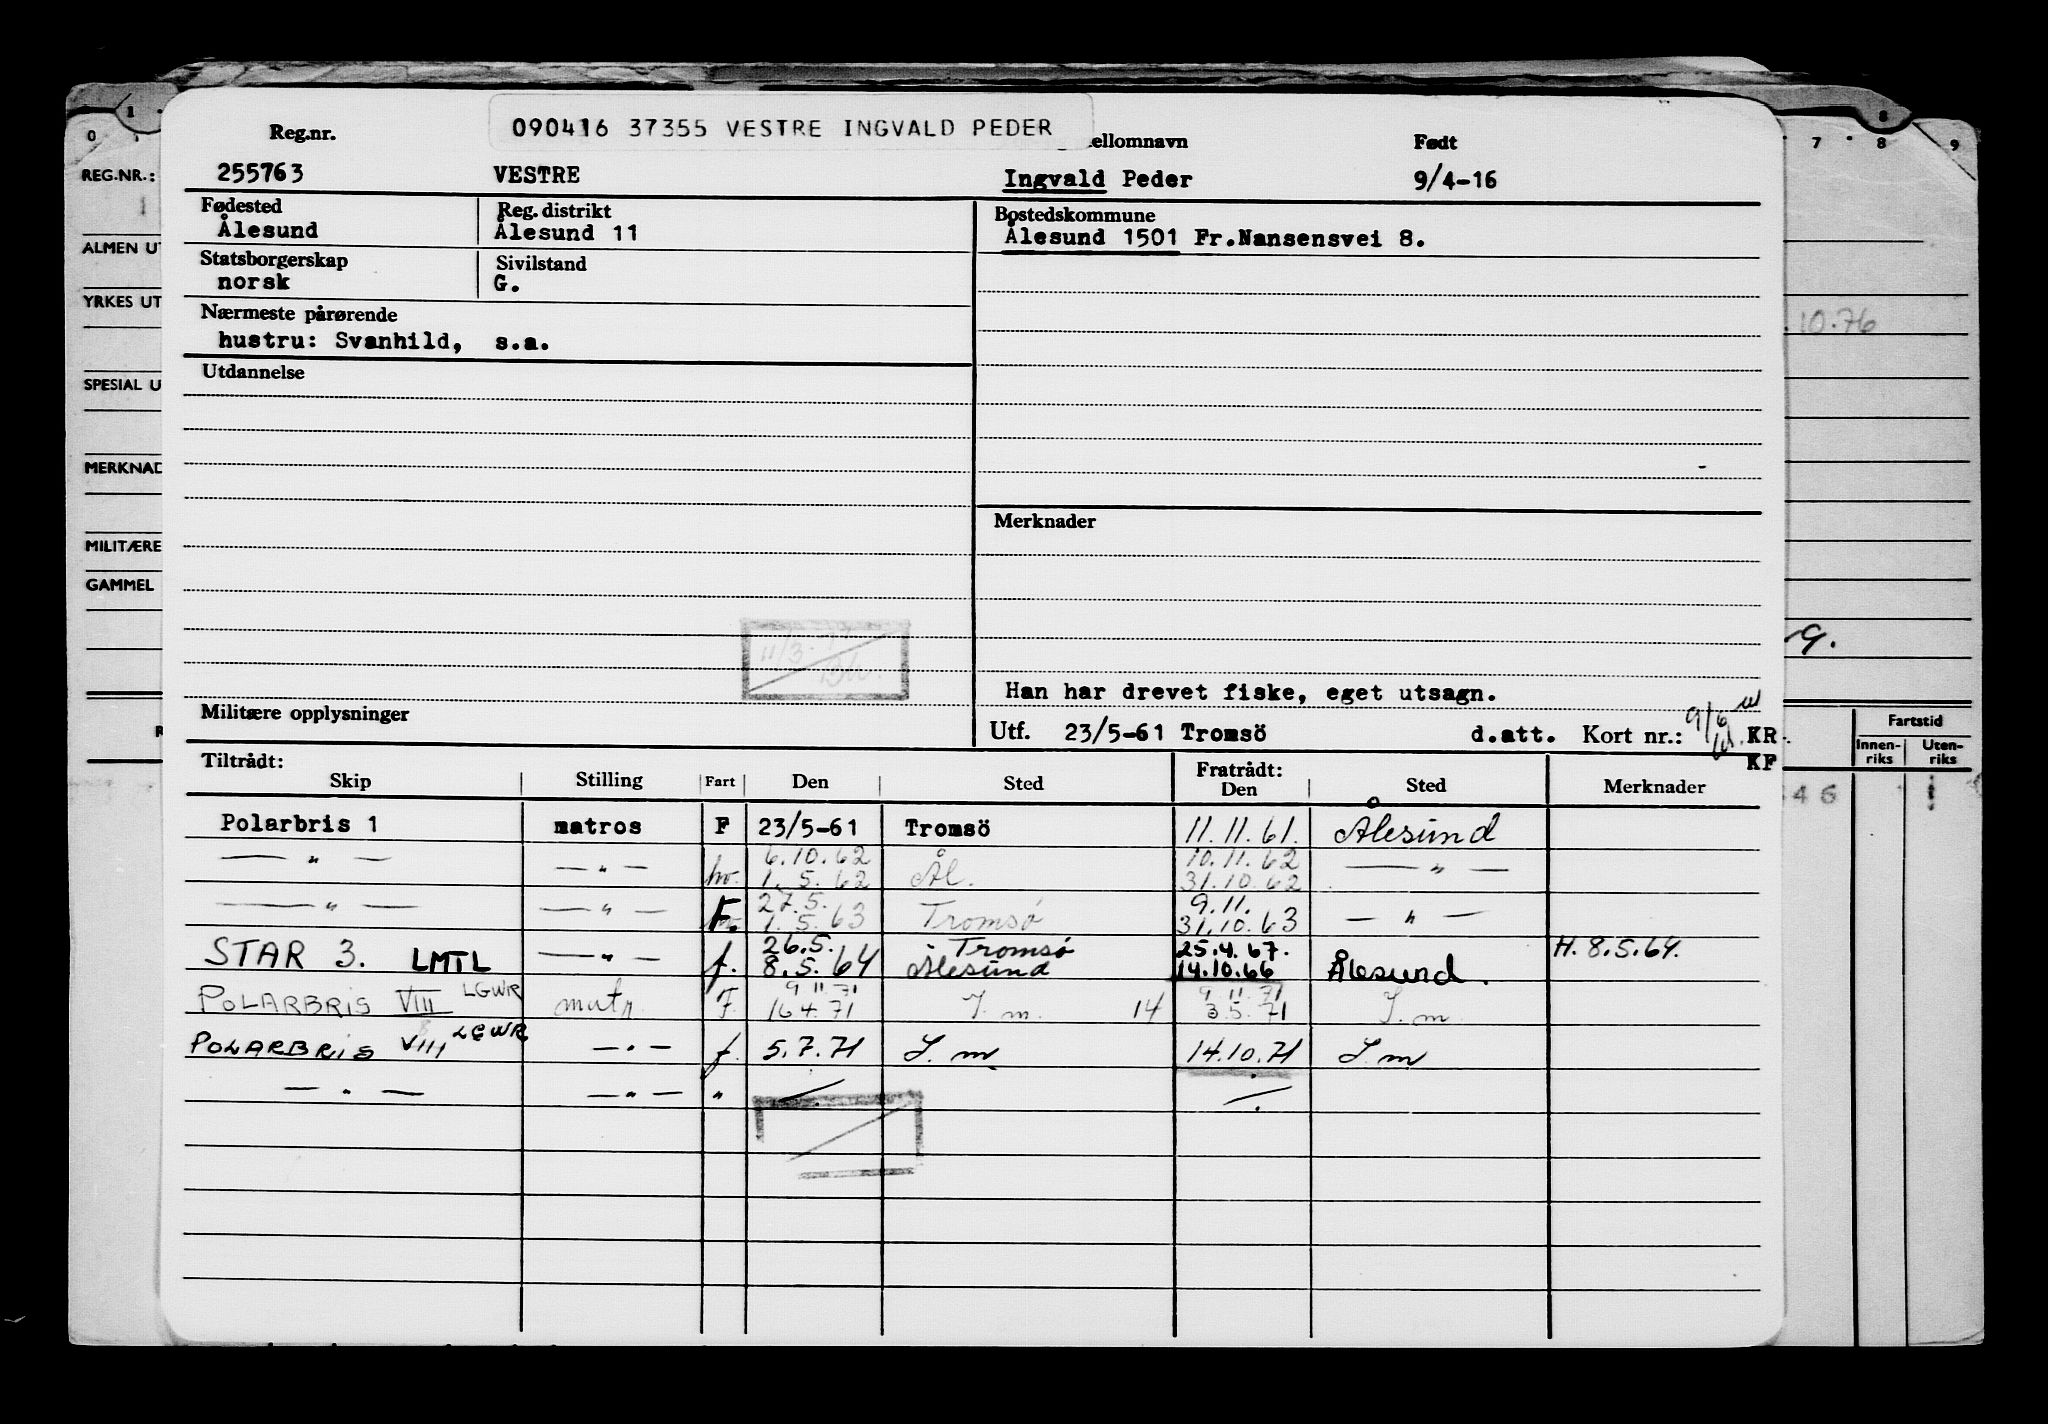 0 1 7 8 8 9
090416 37355 VESTRE INGVALD PEDER
Reg.nr. ellomnavn Født
REG.NR.: 255763 VESTRE Ingvald Peder 9/4-16
Fødested Reg. distrikt Bostedskommune
Ålesund Ålesund 11 Ålesund 1501 Fr.Nansensvei 8.
ALMEN UT
Statsborgerskap Sivilstand
norsk G.
YRKES UT
Nærmeste pårørende
hustru: Svanhild, s.a.
10.76
Utdannelse
SPESIAL U
MERKNAD
Merknader
MILITÆRE
GAMMEL
11/3-
Han har drevet fiske, eget utsagn.
Militære opplysninger
Utf. 23/5-61 Tromsö d.att. Kort nr.: KR.
KF
Fartstid
Innen-riks Uten-riks
Tiltrådt: Fratrådt:
Skip Stilling Fart Den Sted Den Sted Merknader
46
Polarbris 1 matros F 23/5-61 Tromsö 11.11.61. Ålesund
— " — — " — 6.10.62 10.11.62 — " —
hv. 1.5.62 Ål. 31.10.62
— " — — " — F. 27.5. 9.11. — " —
1.5.63 Tromsø 31.10.63
STAR 3. LMTL — " — f. 26.5. Tromsø 25.4.67. H. 8.5.64.
8.5.64 Ålesund 14.10.66 Ålesund.
POLARBRIS VIII LGWR matr F. 9 11 71 9 11 71
16 4. 71 J. m. 14 3. 5. 71 J. m
POLARBRIS VIII LGWR — " — f. 5.7.71 J. m 14.10.71 J. m
— " — — " — "